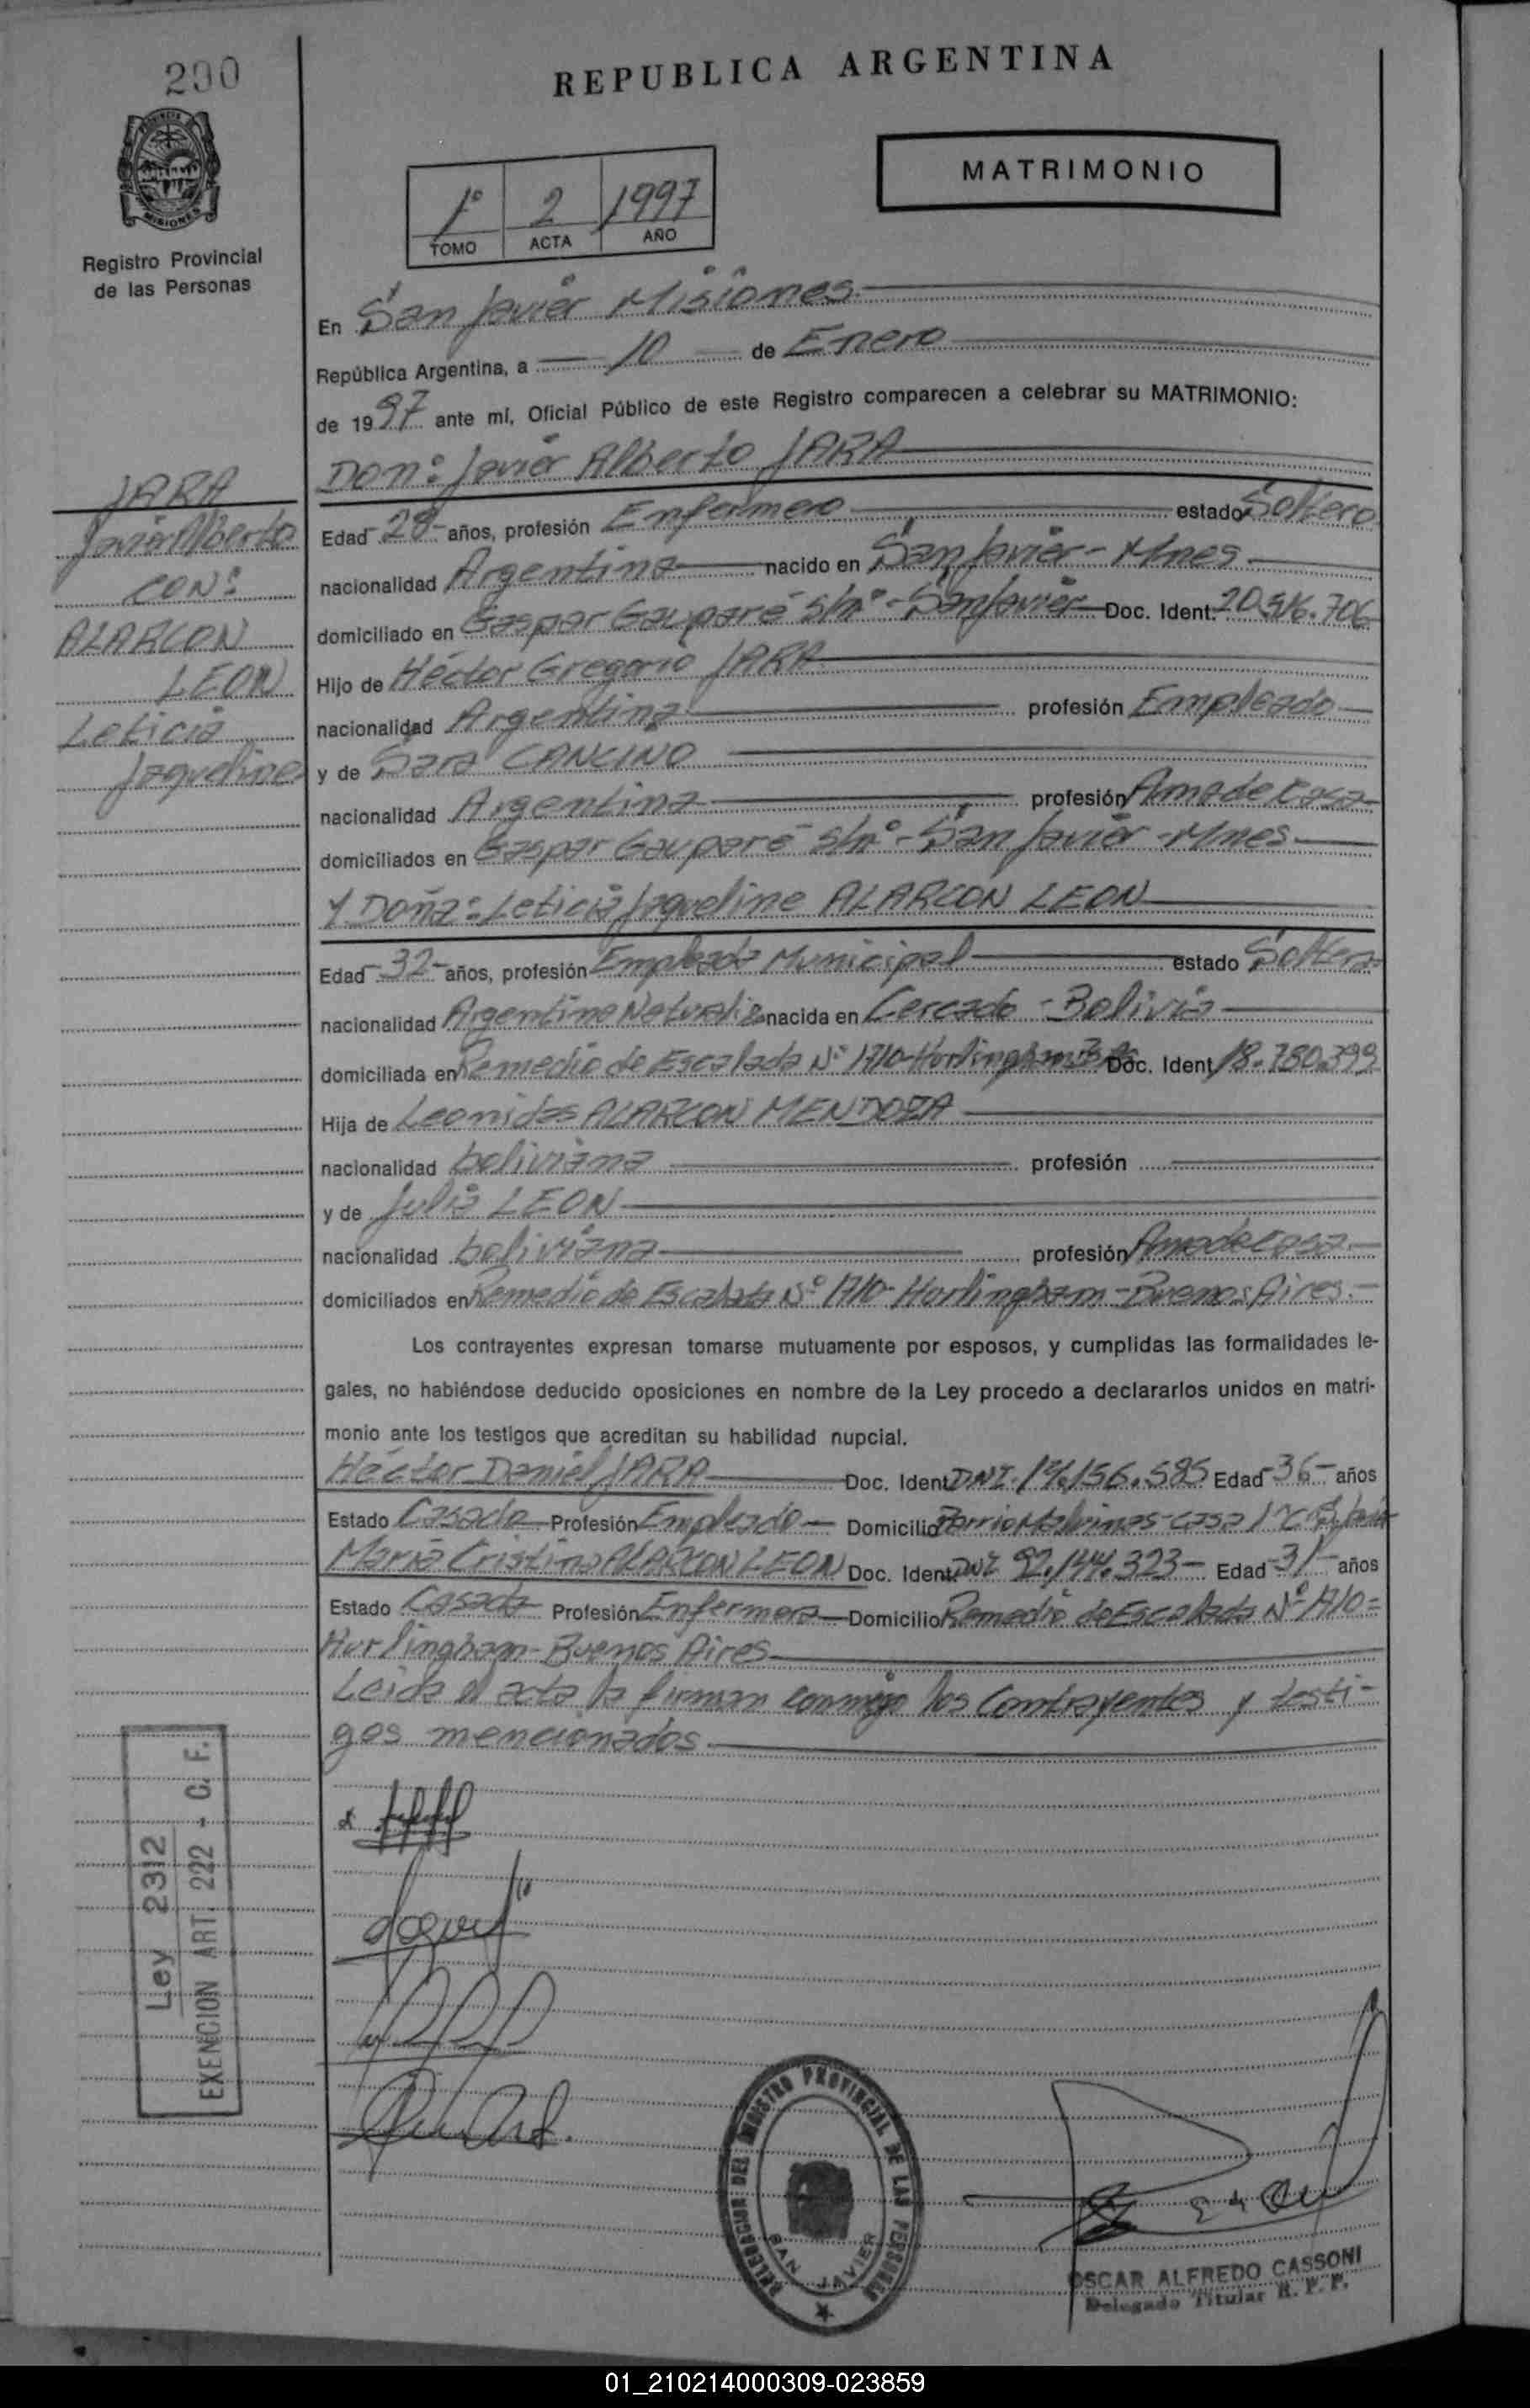 290
REPUBLICA ARGENTINA
MATRIMONIO
1° 2 1997
TOMO ACTA AÑO
PROVINCIA DE
MISIONES
Registro Provincial
de las Personas
En San Javier Misiones
República Argentina, a 10 de Enero
de 1997 ante mí, Oficial Público de este Registro comparecen a celebrar su MATRIMONIO:
Don: Javier Alberto JARA
JARA
Javier Alberto
CON:
ALARCON
LEON
Leticia
Jaqueline
Edad 28 años, profesión Enfermero estado Soltero
nacionalidad Argentina nacido en San Javier - Mnes
domiciliado en Gaspar Gauparé s/nº - San Javier Doc. Ident. 20.516.706
Hijo de Héctor Gregorio JARA
nacionalidad Argentina profesión Empleado
y de Sara CANCINO
nacionalidad Argentina profesión Ama de Casa
domiciliados en Gaspar Gauparé s/nº - San Javier - Mnes
Y Doña: Leticia Jaqueline ALARCON LEON
Edad 32 años, profesión Empleada Municipal estado Soltera
nacionalidad Argentina Naturaliz nacida en Cercado - Bolivia
domiciliada en Remedio de Escalada Nº 1710 - Hurlingham Doc. Ident 18.780.399
Hija de Leonidas ALARCON MENDOZA
nacionalidad boliviana profesión
y de Julia LEON
nacionalidad boliviana profesión Ama de Casa
domiciliados en Remedio de Escalada Nº 1710 - Hurlingham - Buenos Aires.
Los contrayentes expresan tomarse mutuamente por esposos, y cumplidas las formalidades le-
gales, no habiéndose deducido oposiciones en nombre de la Ley procedo a declararlos unidos en matri-
monio ante los testigos que acreditan su habilidad nupcial.
Héctor Daniel JARA Doc. Ident DNI. 14.156.585 Edad 36 años
Estado Casado Profesión Empleado Domicilio Barrio Malvinas - casa
María Cristina ALARCON LEON Doc. Ident. DNI 92.144.323 Edad 31 años
Estado Casada Profesión Enfermera Domicilio Remedio de Escalada Nº 1710 =
Hurlingham - Buenos Aires
Leida el acta la firman conmigo los Contrayentes y testi-
gos mencionados
Ley 2312
EXENCION ART. 222 - C. F.
DELEGACION DEL REGISTRO PROVINCIAL DE LAS PERSONAS
SAN JAVIER
OSCAR ALFREDO CASSONI
Delegado Titular R. P. P.
01_210214000309-023859